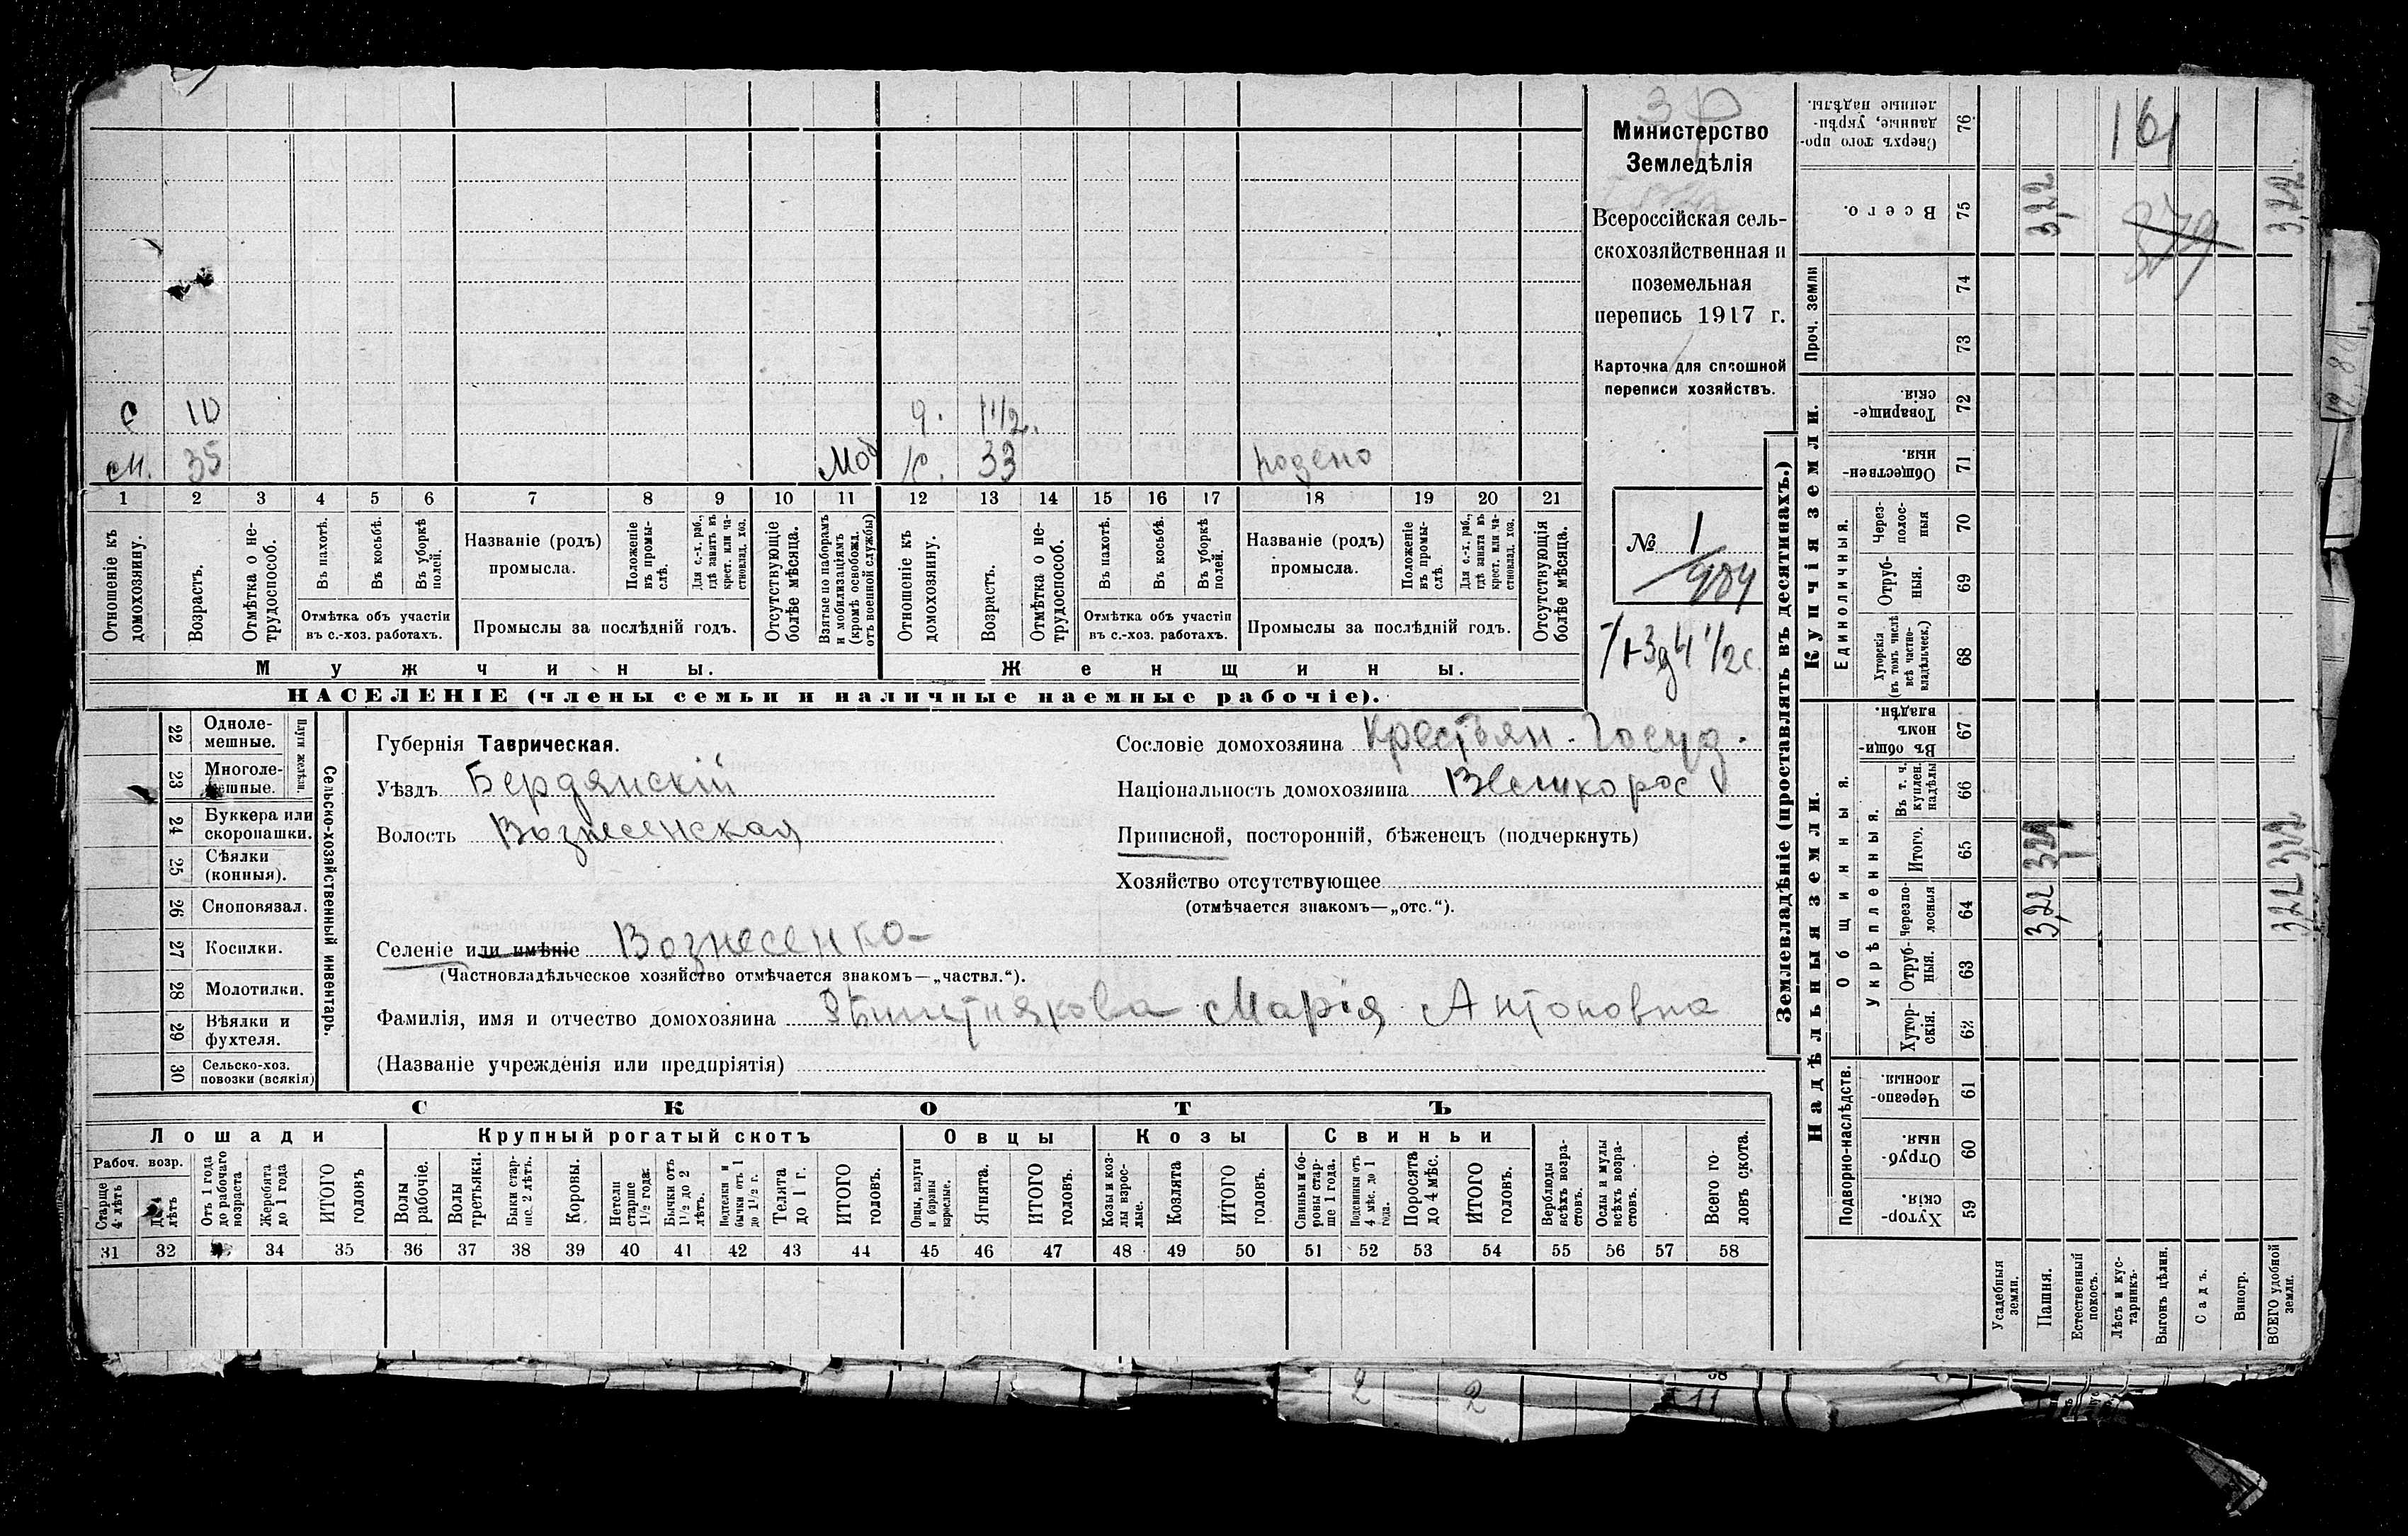 Министерство
Земледѣлія
Всероссійская сель-
скохозяйственная и
поземельная
перепись 1917 г.
Карточка для сплошной
переписи хозяйствъ.
№ 1
7+3д4 1/2с.
с 10 д. 1 1/2.
м. 35 Моб ж. 33
1 2 3 4 5 6 7 8 9 10 11 12 13 14 15 16 17 18 19 20 21
Отношеніе къ домохозяину.
Возрастъ.
Отмѣтка о не-трудоспособ.
Въ пахотѣ.
Въ косьбѣ.
Въ уборкѣ полей.
Отмѣтка объ участіи
въ с.-хоз. работахъ.
Названіе (родъ)
промысла.
Положеніе въ промы-слѣ.
Для с.-х. раб., гдѣ занятъ въ крест. или ча-стновлад. хоз.
Промыслы за послѣдній годъ.
Отсутствующіе болѣе мѣсяца.
Взятые по наборамъ и мобилизаціямъ (кромѣ освобожд. отъ военной службы)
Отношеніе къ домохозяину.
Возрастъ.
Отмѣтка о не-трудоспособ.
Въ пахотѣ.
Въ косьбѣ.
Въ уборкѣ полей.
Отмѣтка объ участіи
въ с.-хоз. работахъ.
Названіе (родъ)
промысла.
Положеніе въ промы-слѣ.
Для с.-х. раб., гдѣ занята въ крест. или ча-стновлад. хоз.
Промыслы за послѣдній годъ.
Отсутствующія болѣе мѣсяца.
Мужчины. Женщины.
НАСЕЛЕНІЕ (члены семьи и наличные наемные рабочіе).
Сельско-хозяйственный инвентарь.
Плуги желѣзн.
22 Одноле-мешные.
23 Многоле-мешные.
24 Буккера или скоропашки.
25 Сѣялки (конныя).
26 Сноповязал.
27 Косилки.
28 Молотилки.
29 Вѣялки и фухтеля.
30 Сельско-хоз. повозки (всякія)
Губернія Таврическая.
Уѣздъ Бердянскій
Волость Вознесенская
Селеніе или имѣніе Вознесенко-
(Частновладѣльческое хозяйство отмѣчается знакомъ—„частвл.“).
Фамилія, имя и отчество домохозяина Марія Антоновна
(Названіе учрежденія или предпріятія)
Сословіе домохозяина Крестьян. Госуд.
Національность домохозяина Великорос
Приписной, посторонній, бѣженецъ (подчеркнуть)
Хозяйство отсутствующее
(отмѣчается знакомъ—„отс.“).
СКОТЪ
Лошади Крупный рогатый скотъ Овцы Козы Свиньи
Рабоч. возр.
Старше 4 лѣтъ
До 4 лѣтъ
Отъ 1 года до рабочаго возраста
Жеребята до 1 года
ИТОГО головъ
Волы рабочіе.
Волы третьяки.
Быки стар-ше 2 лѣтъ.
Коровы.
Нетели старше 1 1/2 года.
Бычки отъ 1 1/2 до 2 лѣтъ.
Подтелки и бычки отъ 1 до 1 1/2 г.
Телята до 1 г.
ИТОГО головъ.
Овцы, валухи и бараны взрослые.
Ягнята.
ИТОГО головъ.
Козы и коз-лы взрос-лые.
Козлята
ИТОГО головъ.
Свиньи и бо-ровы стар-ше 1 года.
Подсвинки отъ 4 мѣс. до 1 года.
Поросята до 4 мѣс.
ИТОГО головъ.
Верблюды всѣхъ возра-стовъ.
Ослы и мулы всѣхъ возра-стовъ.
Всего го-ловъ скота.
31 32 34 35 36 37 38 39 40 41 42 43 44 45 46 47 48 49 50 51 52 53 54 55 56 57 58
Землевладѣніе (проставлять въ десятинахъ.)
Надѣльныя земли. Купчія земли.
Подворно-наслѣдств.
Общинныя.
Укрѣпленныя.
Единоличныя.
Проч. земли
Хутор-скія. 59
Отруб-ныя. 60
Черезпо-лосныя. 61
Хутор-скія. 62
Отруб-ныя. 63
Черезпо-лосныя 64 3,22
Итого. 65
Въ т. ч. куплен. надѣлы 66
Въ общи-номъ владѣн. 67
Хуторскія (въ томъ числѣ всѣ частно-владѣльческ.) 68
Отруб-ныя. 69
Через-полос-ныя 70
Обществен-ныя. 71
Товарище-скія. 72
73
74
Всего. 75 3,22 3,22
Сверхъ того про-данные, укрѣп-ленные надѣлы. 76
161
379
Усадебныя земли.
Пашня.
Естественный покосъ.
Лѣсъ и кус-тарникъ.
Выгонъ цѣлин.
Садъ.
Виногр.
ВСЕГО удобной земли.
2 2 11